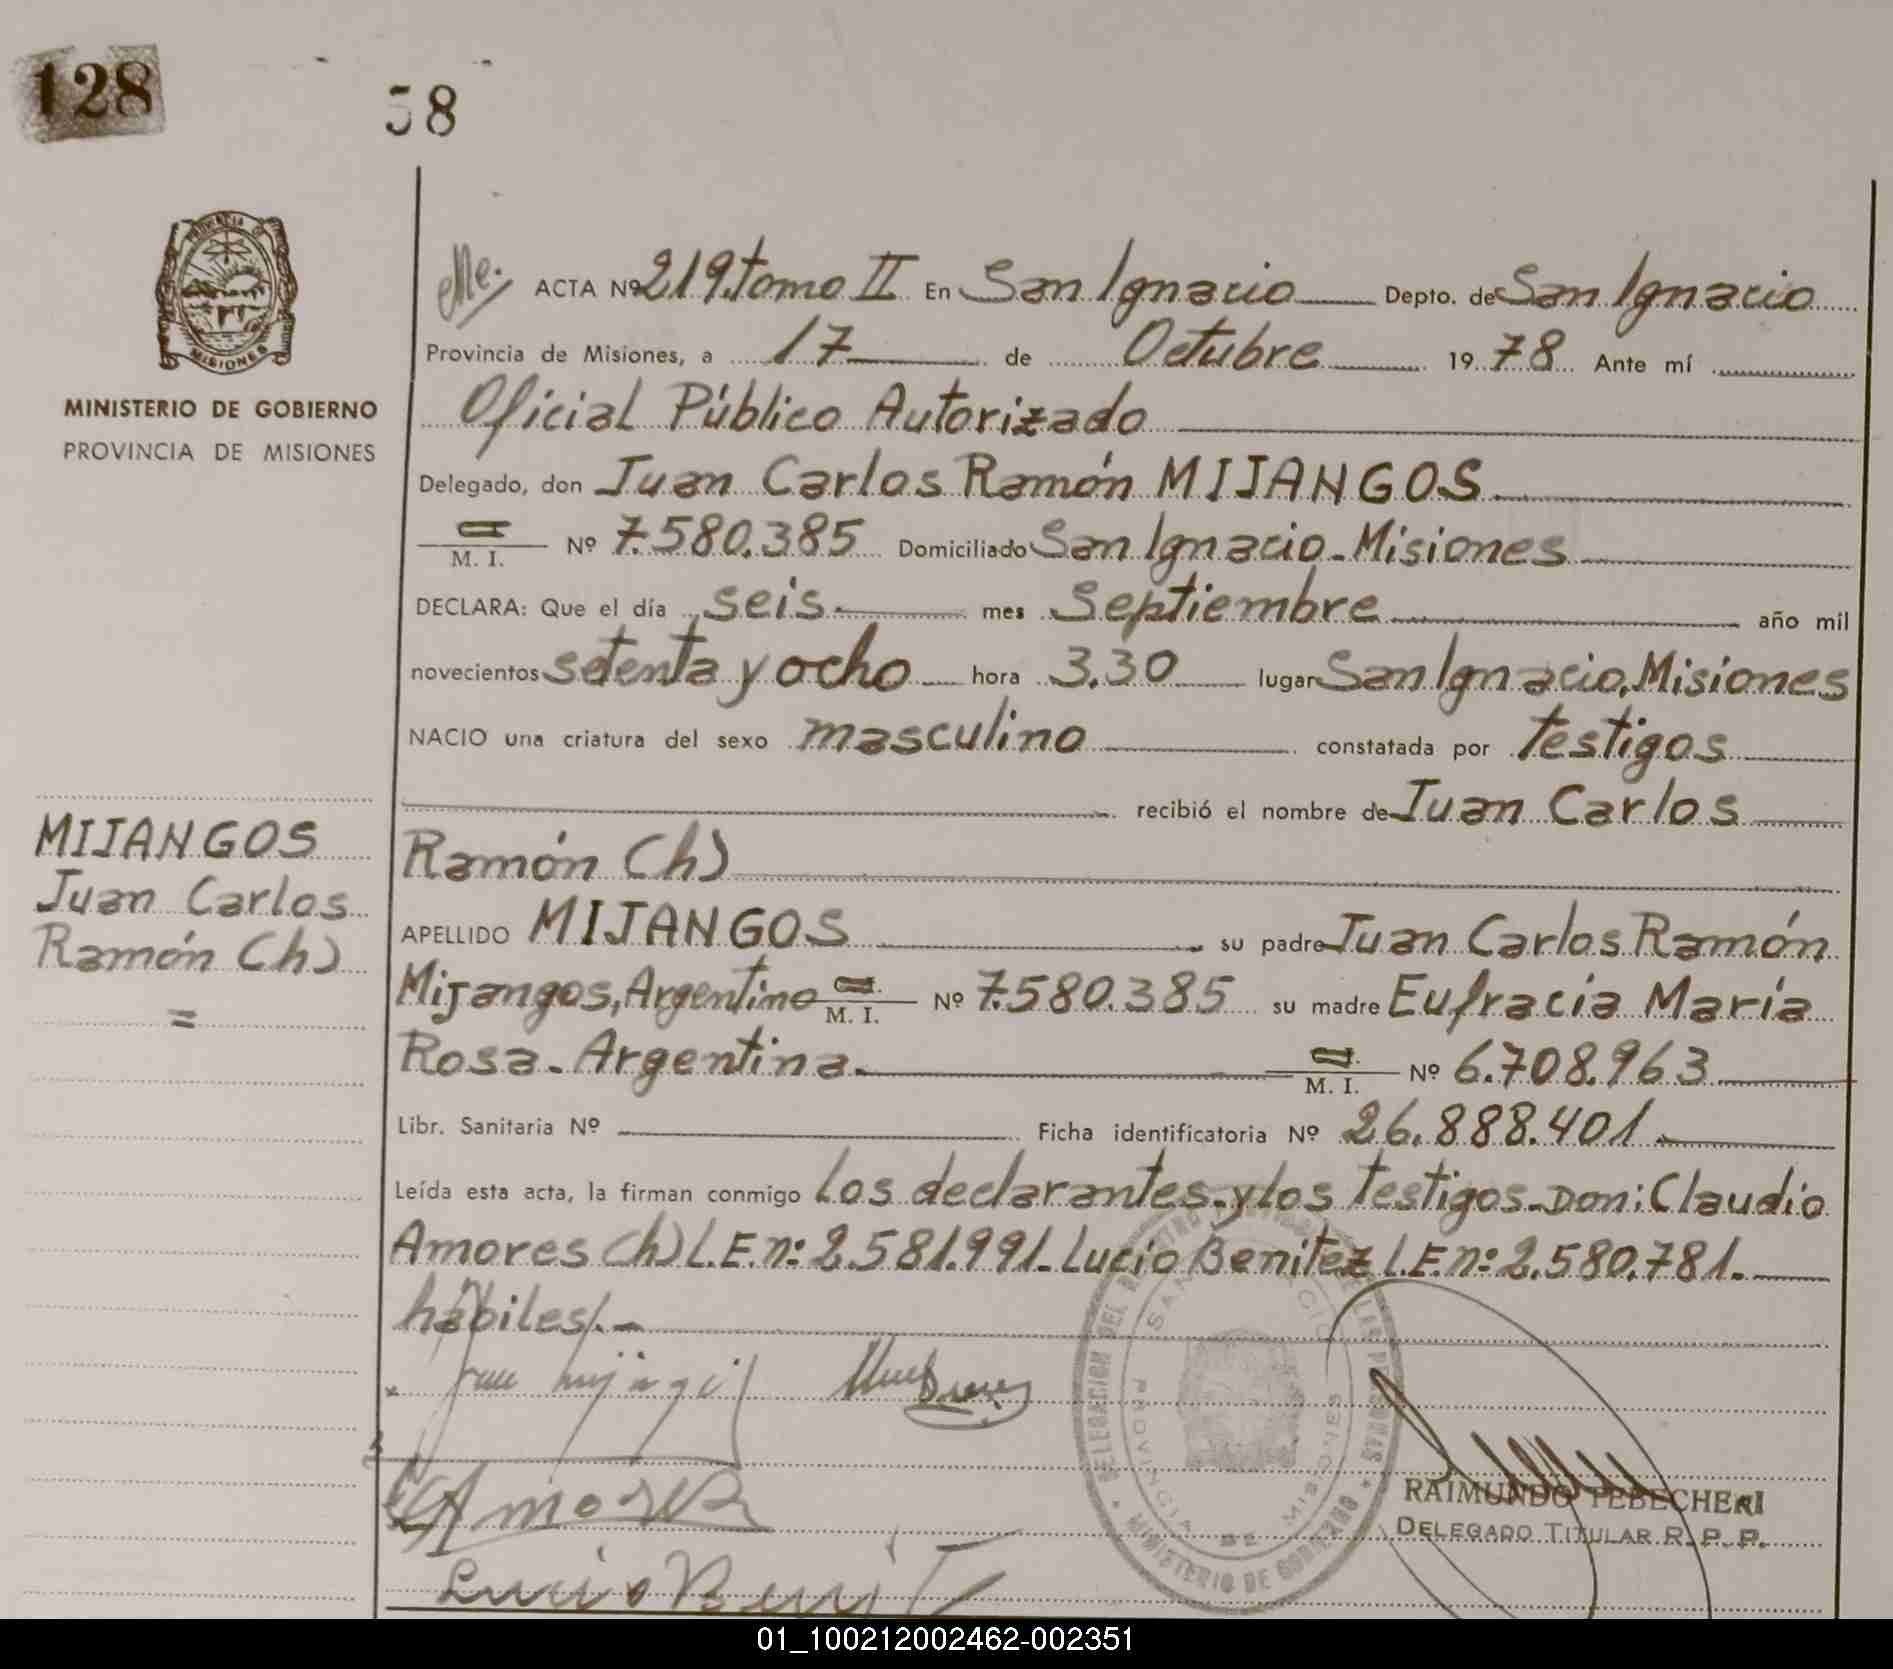 128
58
PROVINCIA DE
MISIONES
MINISTERIO DE GOBIERNO
PROVINCIA DE MISIONES
ACTA Nº 219. tomo II En San Ignacio Depto. de San Ignacio
Provincia de Misiones, a 17 de Octubre 19 78 Ante mí
Oficial Público Autorizado
Delegado, don Juan Carlos Ramón MIJANGOS
M. I. Nº 7.580.385 Domiciliado San Ignacio - Misiones
DECLARA: Que el día seis mes Septiembre año mil
novecientos setenta y ocho hora 3.30 lugar San Ignacio, Misiones
NACIO una criatura del sexo masculino constatada por testigos
recibió el nombre de Juan Carlos
Ramón (h)
APELLIDO MIJANGOS su padre Juan Carlos Ramón
Mijangos, Argentino M. I. Nº 7.580.385 su madre Eufracia María
Rosa - Argentina. M. I. Nº 6.708.963
Libr. Sanitaria Nº Ficha identificatoria Nº 26.888.401.
Leída esta acta, la firman conmigo los declarantes - y los testigos - Don: Claudio
Amores (h) L.E.n: 2.581.991 - Lucio Benitez L.E.n: 2.580.781.
hábiles/.-
MIJANGOS
Juan Carlos
Ramón (h)
=
Amores
Lucio Benit
DELEGACION DEL REGISTRO PROVINCIAL DE LAS PERSONAS
MINISTERIO DE GOBIERNO
SAN IGNACIO
PROVINCIA DE MISIONES
RAIMUNDO TEBECHERI
DELEGADO TITULAR R. P. P.
01_100212002462-002351